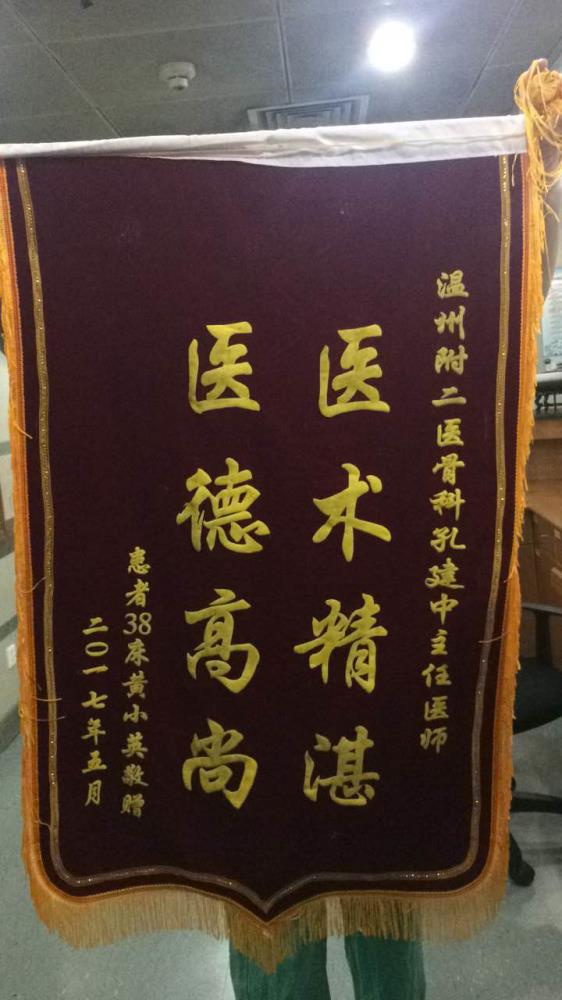 温州附二医骨科孔建中主任医师
医术精湛
医德高尚
患者38床黄小英敬赠
二〇一七年五月